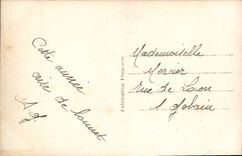 Cette année
aire de
A J
Fabrication Française
Mademoiselle
Mercier
rue de Laon
S. Gobain